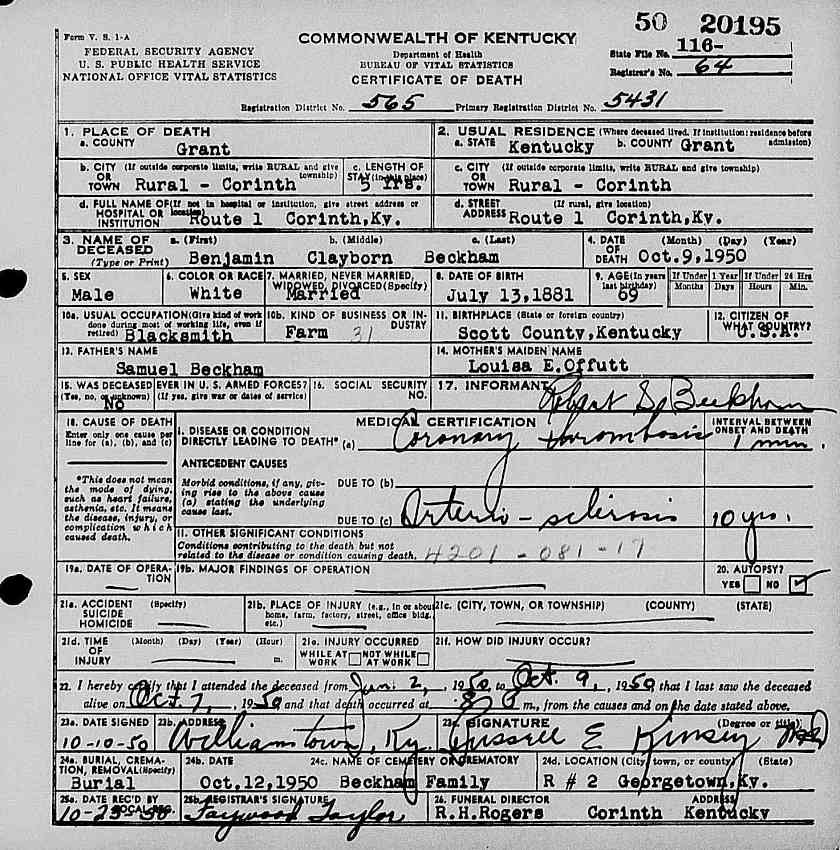 50 20195
Form V. S. 1-A
FEDERAL SECURITY AGENCY
U. S. PUBLIC HEALTH SERVICE
NATIONAL OFFICE VITAL STATISTICS
COMMONWEALTH OF KENTUCKY
Department of Health
BUREAU OF VITAL STATISTICS
CERTIFICATE OF DEATH
State File No. 116-
Registrar's No. 64
Registration District No. 565 Primary Registration District No. 5431
1. PLACE OF DEATH
a. COUNTY Grant
2. USUAL RESIDENCE (Where deceased lived. If institution: residence before admission)
a. STATE Kentucky b. COUNTY Grant
b. CITY (If outside corporate limits, write RURAL and give township)
OR TOWN Rural - Corinth
c. LENGTH OF STAY (in this place) 5 Yrs.
c. CITY (If outside corporate limits, write RURAL and give township)
OR TOWN Rural - Corinth
d. FULL NAME OF (If not in hospital or institution, give street address or location)
HOSPITAL OR INSTITUTION Route 1 Corinth,Ky.
d. STREET (If rural, give location)
ADDRESS Route 1 Corinth,Ky.
3. NAME OF DECEASED (Type or Print)
a. (First) b. (Middle) c. (Last)
Benjamin Clayborn Beckham
4. DATE OF DEATH (Month) (Day) (Year)
Oct.9,1950
5. SEX
Male
6. COLOR OR RACE
White
7. MARRIED, NEVER MARRIED, WIDOWED, DIVORCED (Specify)
Married
8. DATE OF BIRTH
July 13,1881
9. AGE (In years last birthday) 69
If Under 1 Year Months Days
If Under 24 Hrs Hours Min.
10a. USUAL OCCUPATION (Give kind of work done during most of working life, even if retired)
Blacksmith
10b. KIND OF BUSINESS OR INDUSTRY
Farm 31
11. BIRTHPLACE (State or foreign country)
Scott County,Kentucky
12. CITIZEN OF WHAT COUNTRY?
U.S.A.
13. FATHER'S NAME
Samuel Beckham
14. MOTHER'S MAIDEN NAME
Louisa E.Offutt
15. WAS DECEASED EVER IN U. S. ARMED FORCES?
(Yes, no, or unknown) (If yes, give war or dates of service)
No
16. SOCIAL SECURITY NO.
17. INFORMANT Robert S. Beckham
18. CAUSE OF DEATH
Enter only one cause per line for (a), (b), and (c)
*This does not mean the mode of dying, such as heart failure, asthenia, etc. It means the disease, injury, or complication which caused death.
MEDICAL CERTIFICATION
INTERVAL BETWEEN ONSET AND DEATH
I. DISEASE OR CONDITION DIRECTLY LEADING TO DEATH* (a) Coronary thrombosis 1 min.
ANTECEDENT CAUSES
Morbid conditions, if any, giving rise to the above cause (a) stating the underlying cause last.
DUE TO (b)
DUE TO (c) Arterio - sclerosis 10 yrs.
II. OTHER SIGNIFICANT CONDITIONS
Conditions contributing to the death but not related to the disease or condition causing death. 4201 - 081 - 17
19a. DATE OF OPERATION
19b. MAJOR FINDINGS OF OPERATION
20. AUTOPSY?
YES NO ✓
21a. ACCIDENT SUICIDE HOMICIDE (Specify)
21b. PLACE OF INJURY (e.g., in or about home, farm, factory, street, office bldg. etc.)
21c. (CITY, TOWN, OR TOWNSHIP) (COUNTY) (STATE)
21d. TIME OF INJURY (Month) (Day) (Year) (Hour) m.
21e. INJURY OCCURRED
WHILE AT WORK NOT WHILE AT WORK
21f. HOW DID INJURY OCCUR?
22. I hereby certify that I attended the deceased from Jun. 2, 1950 to Oct. 9, 1950 that I last saw the deceased
alive on Oct. 7, 1950 and that death occurred at m., from the causes and on the date stated above.
23a. DATE SIGNED
10-10-50
23b. ADDRESS
Williamstown, Ky.
23c. SIGNATURE (Degree or title)
Russell E Kinsey MD
24a. BURIAL, CREMATION, REMOVAL (Specify)
Burial
24b. DATE
Oct.12,1950
24c. NAME OF CEMETERY OR CREMATORY
Beckham Family
24d. LOCATION (City, town, or county) (State)
R # 2 Georgetown,Ky.
25a. DATE REC'D BY LOCAL REG.
10-23-50
25b. REGISTRAR'S SIGNATURE
Taylor
26. FUNERAL DIRECTOR ADDRESS
R.H.Rogers Corinth Kentucky